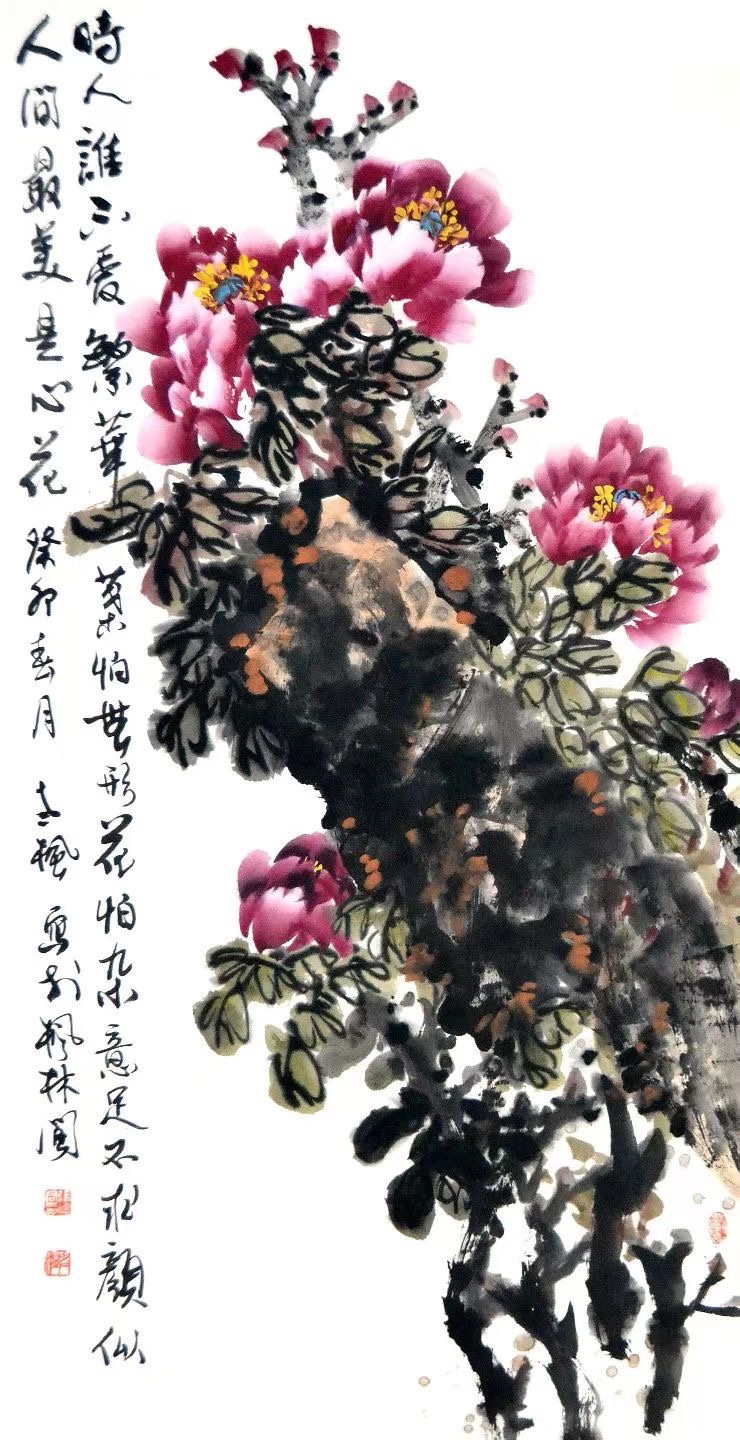 時人誰不愛繁華 葉怕無形花怕杂意足不求顏似
人间最美是心花 癸卯春月 志楓 写於楓林阁